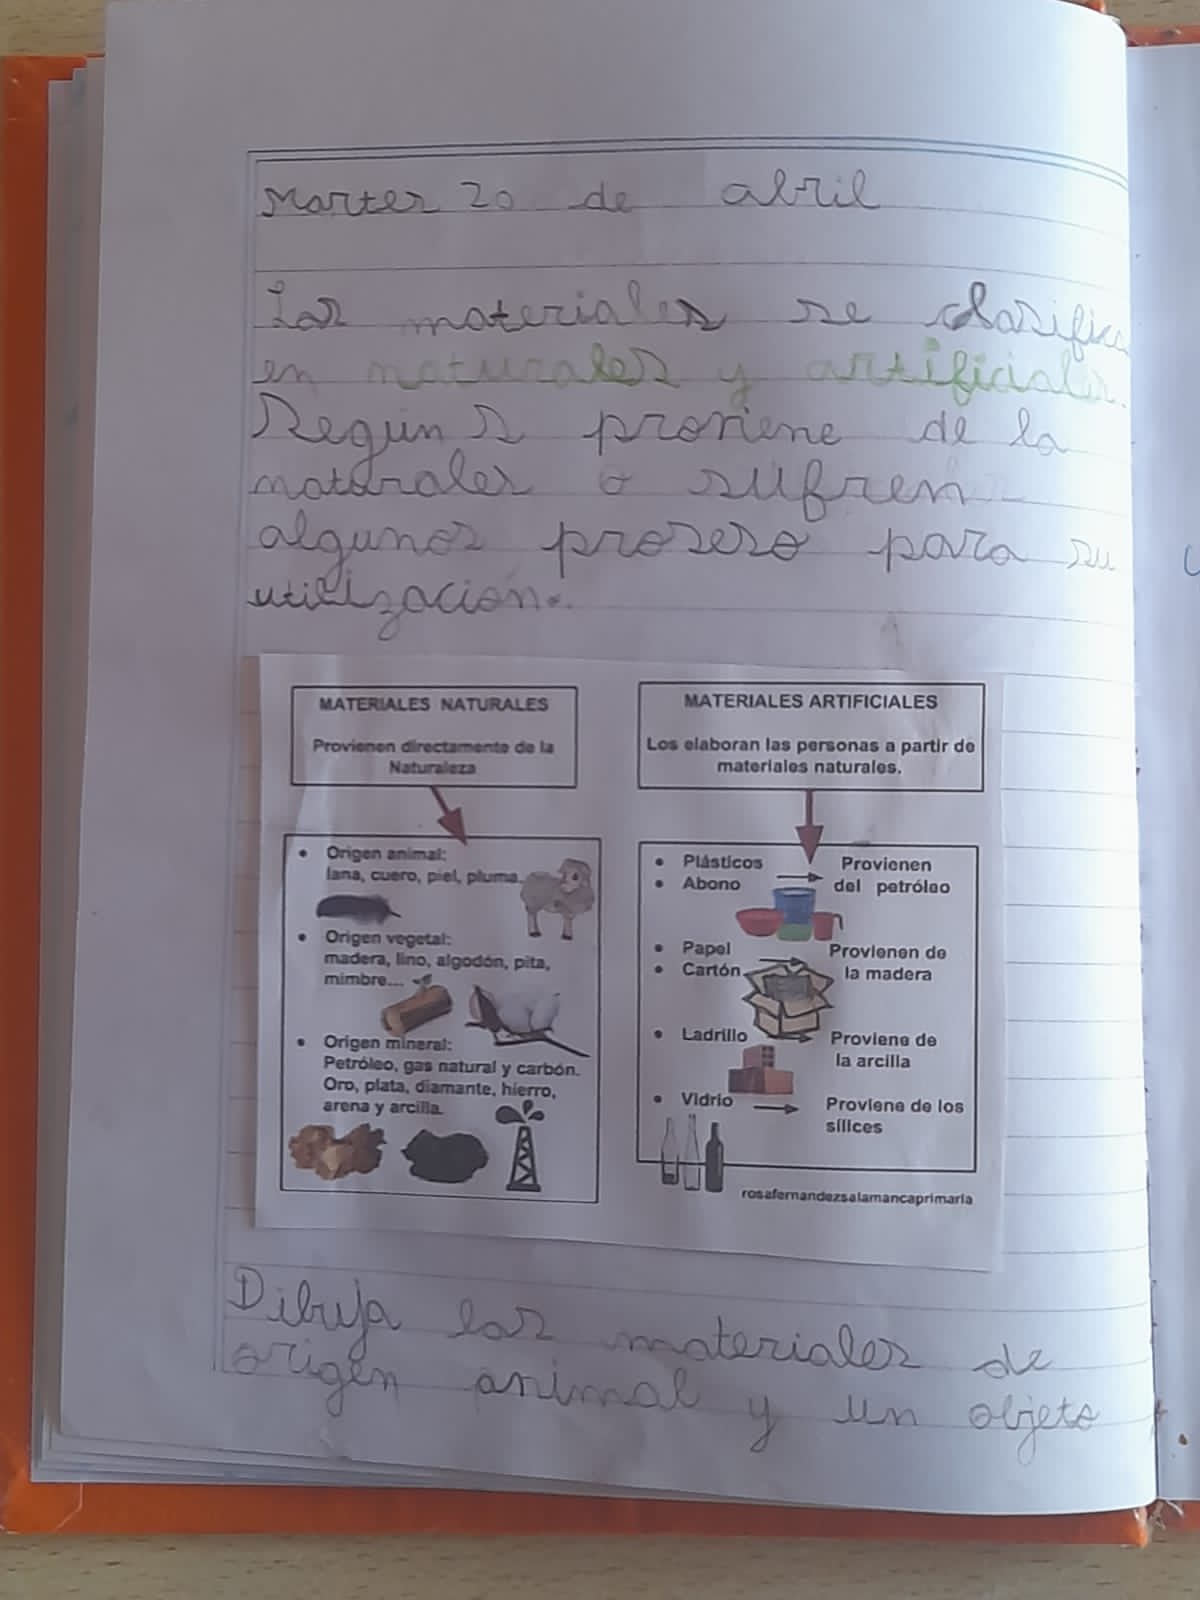 Martes 20 de abril
Los materiales se clasifica
en naturales y artificiales.
Según s proviene de la
naturales o sufren
algunos proseso para su
utilización.
MATERIALES NATURALES
Provienen directamente de la
Naturaleza
Origen animal:
lana, cuero, piel, pluma.
Origen vegetal:
madera, lino, algodón, pita,
mimbre...
Origen mineral:
Petróleo, gas natural y carbón.
Oro, plata, diamante, hierro,
arena y arcilla.
MATERIALES ARTIFICIALES
Los elaboran las personas a partir de
materiales naturales.
Plásticos
Abono
Provienen
del petróleo
Papel
Cartón
Provienen de
la madera
Ladrillo
Proviene de
la arcilla
Vidrio
Proviene de los
sílices
rosafernandezsalamancaprimaria
Dibuja los materiales de
origen animal y un objeto